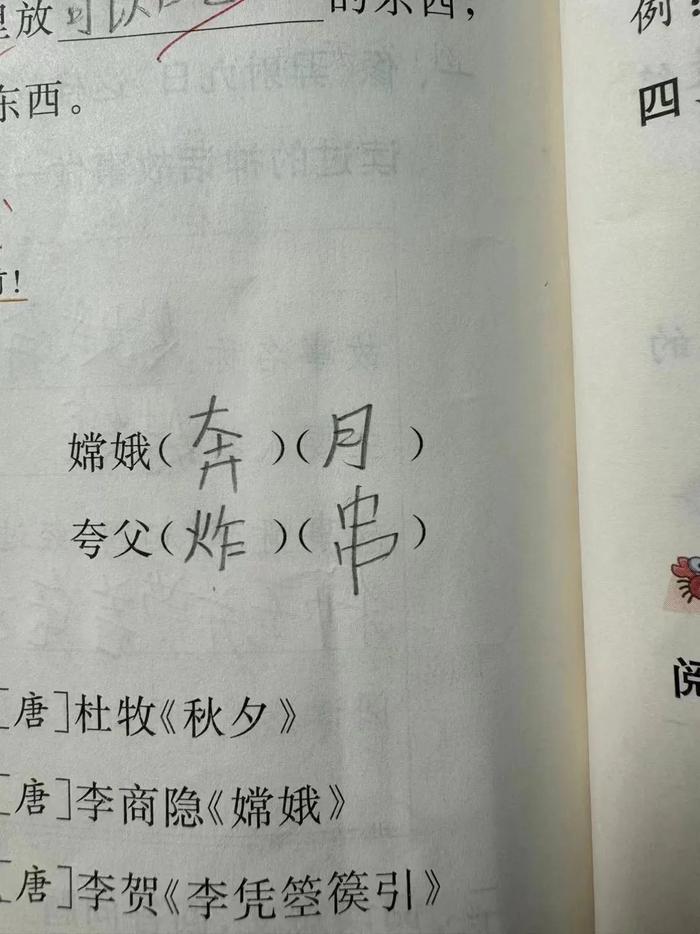 里放可以 的东西,
东西。
!
嫦娥(奔)(月)
夸父(炸)(串)
[唐]杜牧《秋夕》
[唐]李商隐《嫦娥》
[唐]李贺《李凭箜篌引》
例:
四
阅